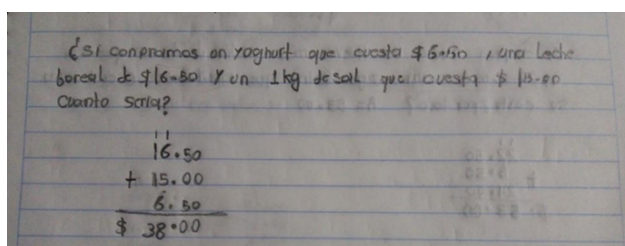 ¿Si conpramos un yoghurt que cuesta $6.50 , una Leche
boreal de $16.50 y un 1kg de sal que cuesta $ 15.00
Cuanto seria?
11
16.50
+ 15.00
6.50
$ 38.00